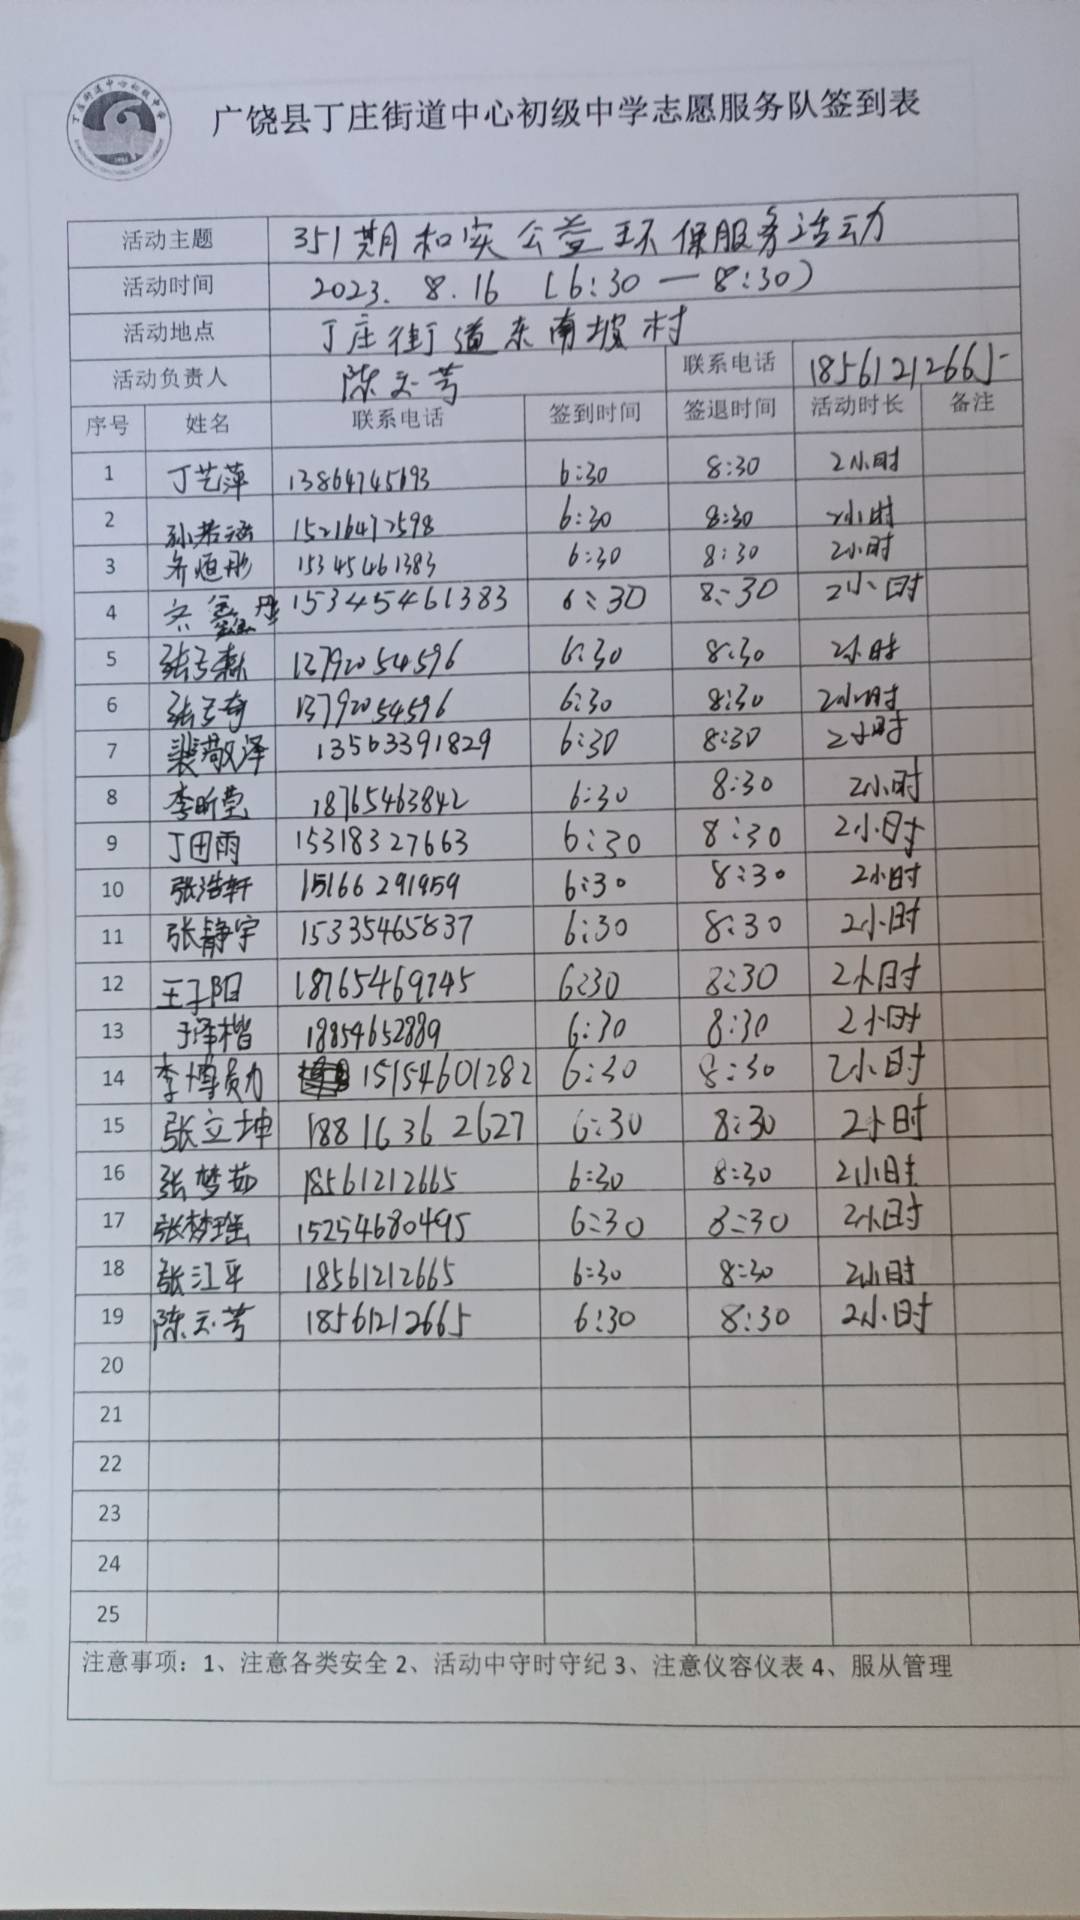 丁庄街道中心初级中学
广饶县丁庄街道中心初级中学志愿服务队签到表
活动主题 351期和实公益环保服务活动
活动时间 2023. 8. 16 (6:30—8:30)
活动地点 丁庄街道东南坡村
活动负责人 陈玉芳 联系电话 18561212665
序号 姓名 联系电话 签到时间 签退时间 活动时长 备注
1 丁艺萍 13864745693 6:30 8:30 2小时
2 孙若涵 15216472598 6:30 8:30 2小时
3 齐恒彤 15345461383 6:30 8:30 2小时
4 15345461383 6:30 8:30 2小时
5 13792054596 6:30 8:30 2小时
6 13792054596 6:30 8:30 2小时
7 裴敬泽 13563391829 6:30 8:30 2小时
8 李昕莹 18765463842 6:30 8:30 2小时
9 丁田雨 15318327663 6:30 8:30 2小时
10 张浩轩 15166291959 6:30 8:30 2小时
11 张静宇 15335465837 6:30 8:30 2小时
12 王子阳 18765469745 6:30 8:30 2小时
13 于泽楷 18854652889 6:30 8:30 2小时
14 李博 15154601282 6:30 8:30 2小时
15 张立坤 18816362627 6:30 8:30 2小时
16 张梦茹 18561212665 6:30 8:30 2小时
17 张梦瑶 15254680495 6:30 8:30 2小时
18 张江平 18561212665 6:30 8:30 2小时
19 陈玉芳 18561212665 6:30 8:30 2小时
20
21
22
23
24
25
注意事项：1、注意各类安全 2、活动中守时守纪 3、注意仪容仪表 4、服从管理